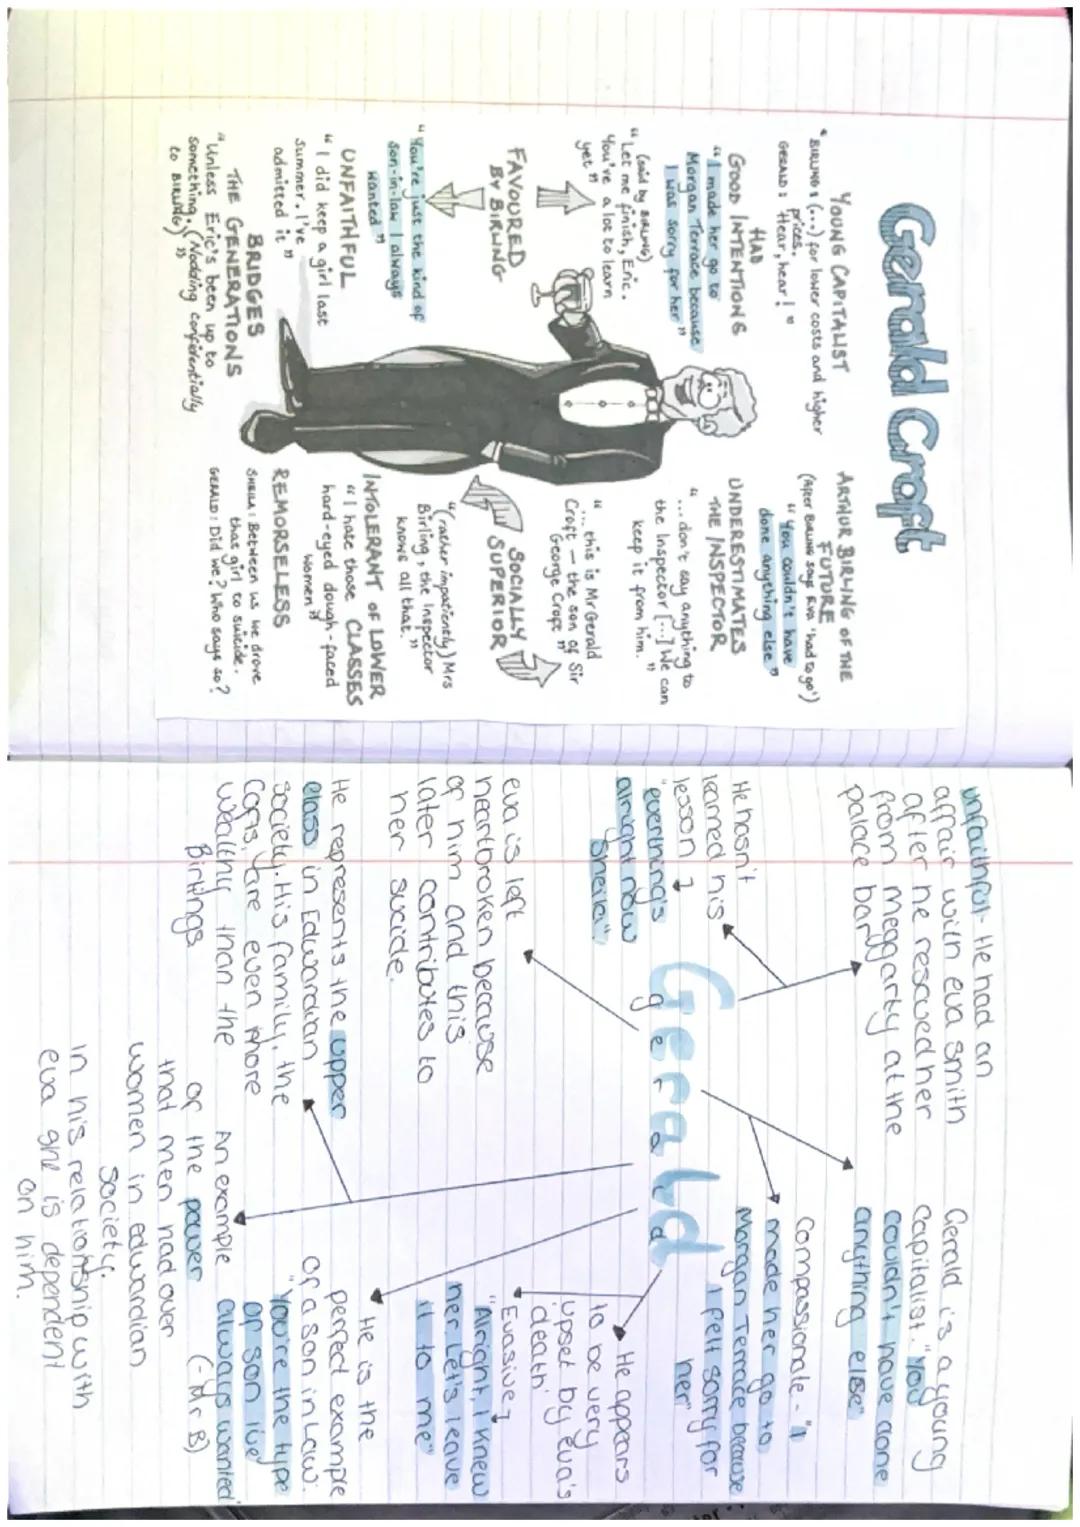 Gerald Croft
YOUNG CAPITALIST
"BIRLING: (...) for lower costs and higher
prices.
GERALD: Hear, hear!"
HAD
GOOD INTENTIONS
"I made her go to
Morgan Terrace because
I was sorry for her"
(said by BIRLING)
"Let me finish, Eric.
You've a lot to learn
yet"
FAVOURED
BY BIRLING
"You're just the kind of
son-in-law I always
wanted"
UNFAITHFUL
"I did keep a girl last
summer. I've
admitted it"
BRIDGES
THE GENERATIONS
"Unless Eric's been up to
something. (Nodding confidentially
to BIRLING)"
ARTHUR BIRLING OF THE
FUTURE
(After BIRLING says Eva 'had to go')
"You couldn't have
done anything else"
UNDERESTIMATES
THE INSPECTOR
"...don't say anything to
the Inspector [...] We can
keep it from him."
"... this is Mr Gerald
Croft – the son of Sir
George Croft"
SOCIALLY
SUPERIOR
"(rather impatiently) Mrs
Birling, the Inspector
knows all that."
INTOLERANT OF LOWER
CLASSES
"I hate those
hard-eyed dough-faced
women"
REMORSELESS
SHEILA: Between us we drove
that girl to suicide.
GERALD: Did we? Who says so?
unfaithful- He had an
affair with eva smith
after he rescued her
from meggarty at the
palace bar
He hasn't
learned his
lesson
"everting's
alright now
Sheila"
eva is left
heartbroken because
of him and this
later contributes to
her sucide.
He represents the upper
class in Edwardian
society. His family, the
Cofts, are even more
wealthy than the
Birlings
Gerald
gerald
Gerald is a young
Capitalist. "You
couldn't have done
anything else"
Compassionate - "I
made her go to
Morgan Terrace because
I felt sorry for
her"
He appears
to be very
upset by eva's
death.
Evasive
"Alright, I knew
her. Let's leave
it to me"
He is the
perfect example
of a son in law.
"You're the type
of son ive
always wanted"
(-Mr B)
An example
of the power
that men had over
women in edwardian
society.
In his relationship with
eva she is dependent
on him.